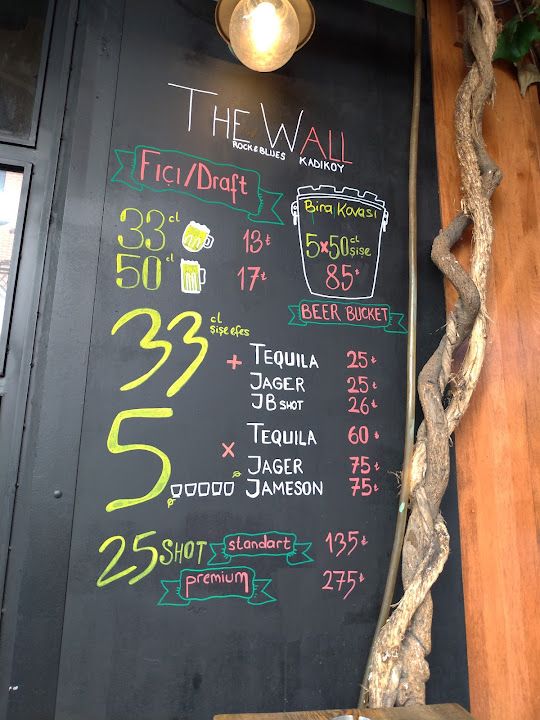 THE WALL
ROCK & BLUES KADIKOY
FIÇI/Draft
33 cl 13₺
50 cl 17₺
Bira Kovası
5x50 cl şişe
85₺
BEER BUCKET
33 cl şişe efes
+ TEQUILA 25₺
JAGER 25₺
JB SHOT 26₺
5 x TEQUILA 60₺
JAGER 75₺
JAMESON 75₺
25 SHOT standart 135₺
premium 275₺